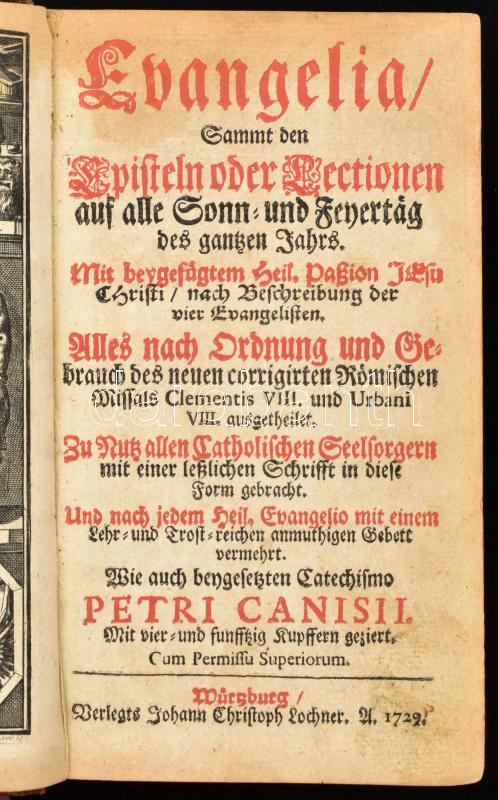 Evangelia/
Sammt den
Episteln oder Lectionen
auf alle Sonn- und Feyertäg
des gantzen Jahrs.
Mit beygefügtem Heil. Paßion JEsu
CHristi / nach Beschreibung der
vier Evangelisten.
Alles nach Ordnung und Ge-
brauch des neuen corrigirten Römischen
Missals Clementis VIII. und Urbani
VIII. ausgetheilet.
Zu Nutz allen Catholischen Seelsorgern
mit einer leßlichen Schrifft in diese
Form gebracht.
Und nach jedem Heil. Evangelio mit einem
Lehr- und Trost-reichen anmuthigen Gebett
vermehrt.
Wie auch beygesetzten Catechismo
PETRI CANISII.
Mit vier- und funfftzig Kupffern geziert.
Cum Permissu Superiorum.
Würtzburg /
Verlegts Johann Christoph Lochner. A. 1729.